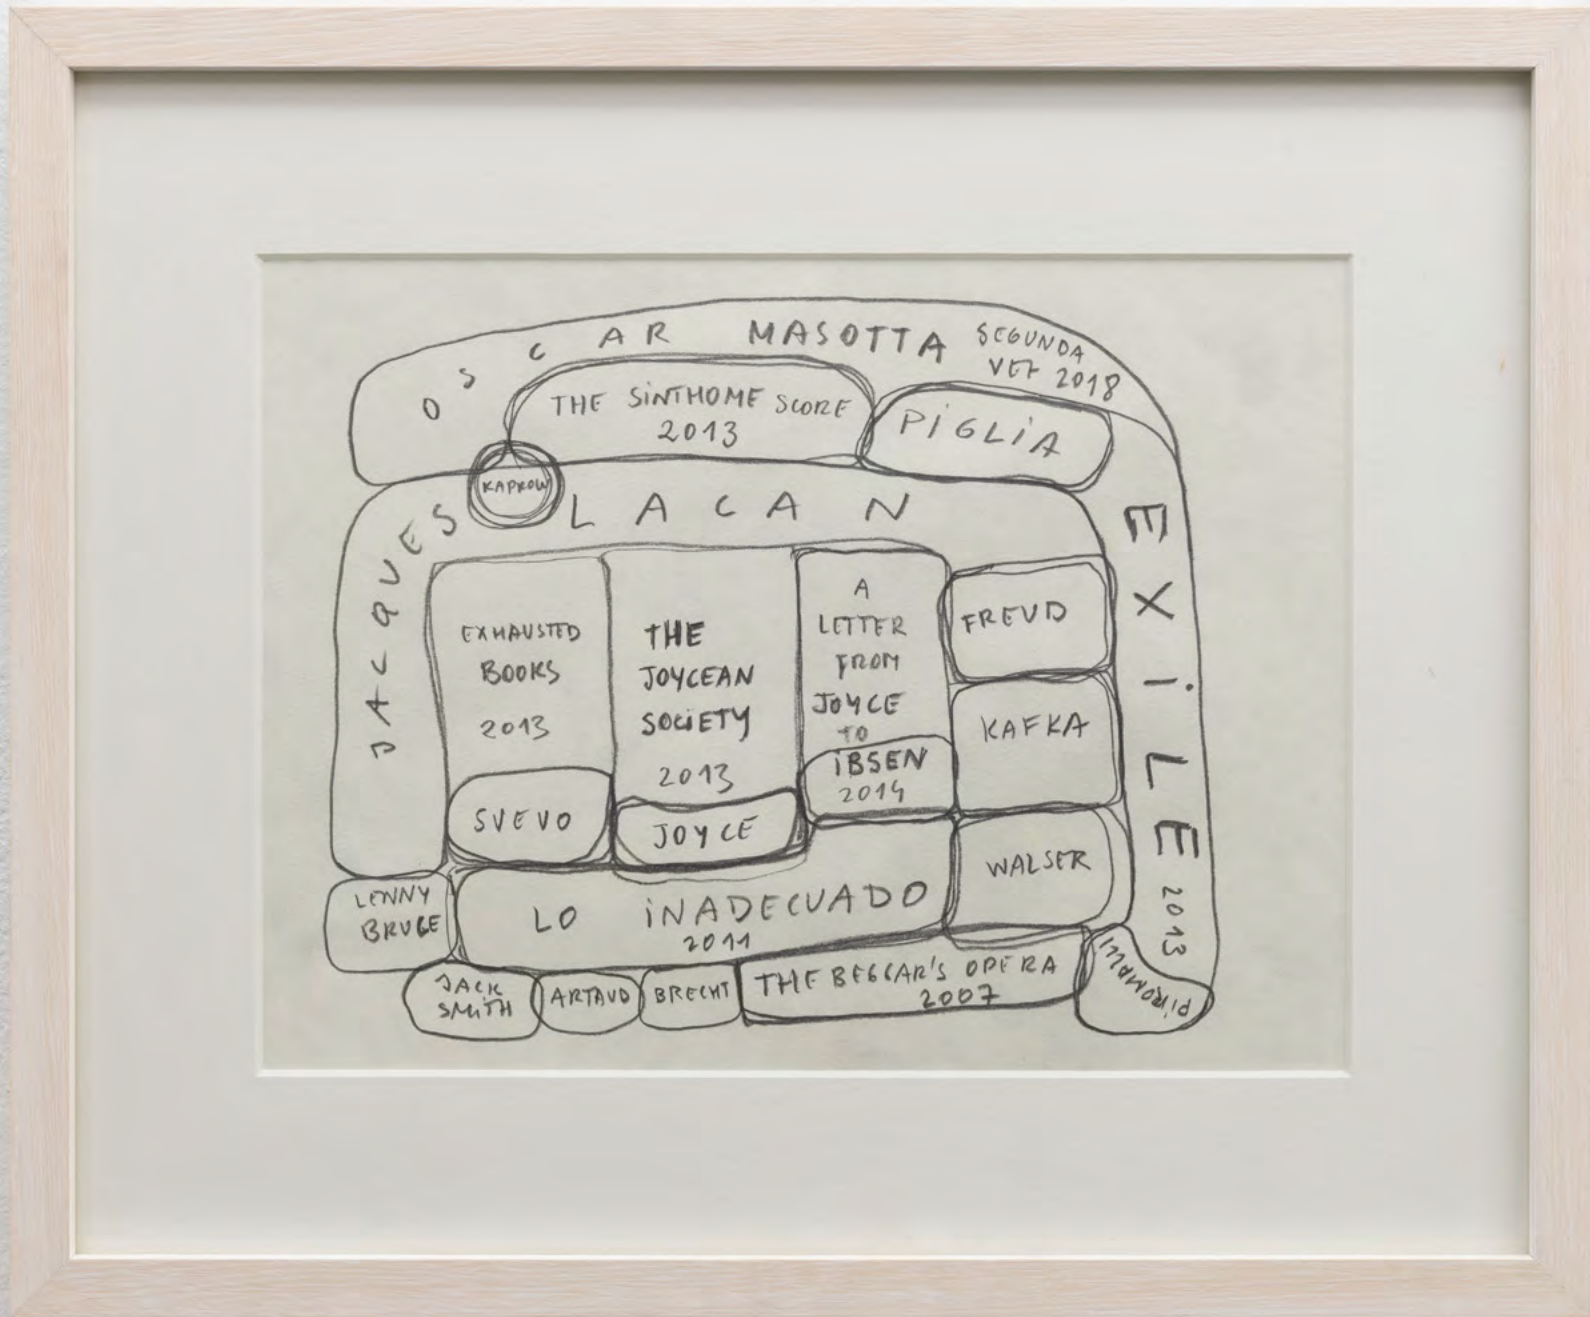 OSCAR MASOTTA SEGUNDA
VEZ 2018
THE SiNTHOME SCORE
2013
PiGLiA
KAPROW
JACQUES LACAN
EXiLE 2013
EXHAUSTED
BOOKS
2013
SVEVO
THE
JOYCEAN
SOCiETY
2013
JOYCE
A
LETTER
FROM
JOYCE
TO
iBSEN
2014
FREUD
KAFKA
WALSER
LENNY
BRUCE
LO iNADECUADO
2011
JACK
SMiTH
ARTAUD
BRECHT
THE BEGGAR'S OPERA
2007
PiROMALLi